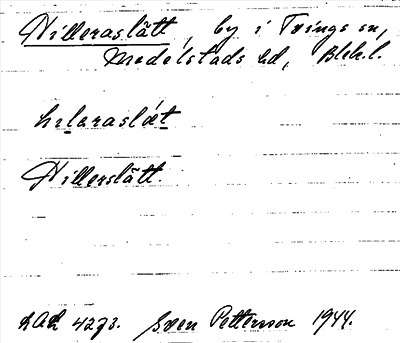 Hilleraslätt, by i Tvings sn,
Medelstads hd, Blek.l.
hɩlaraslæt
Hillerslätt
LAL 4273. Sven Pettersson 1944.